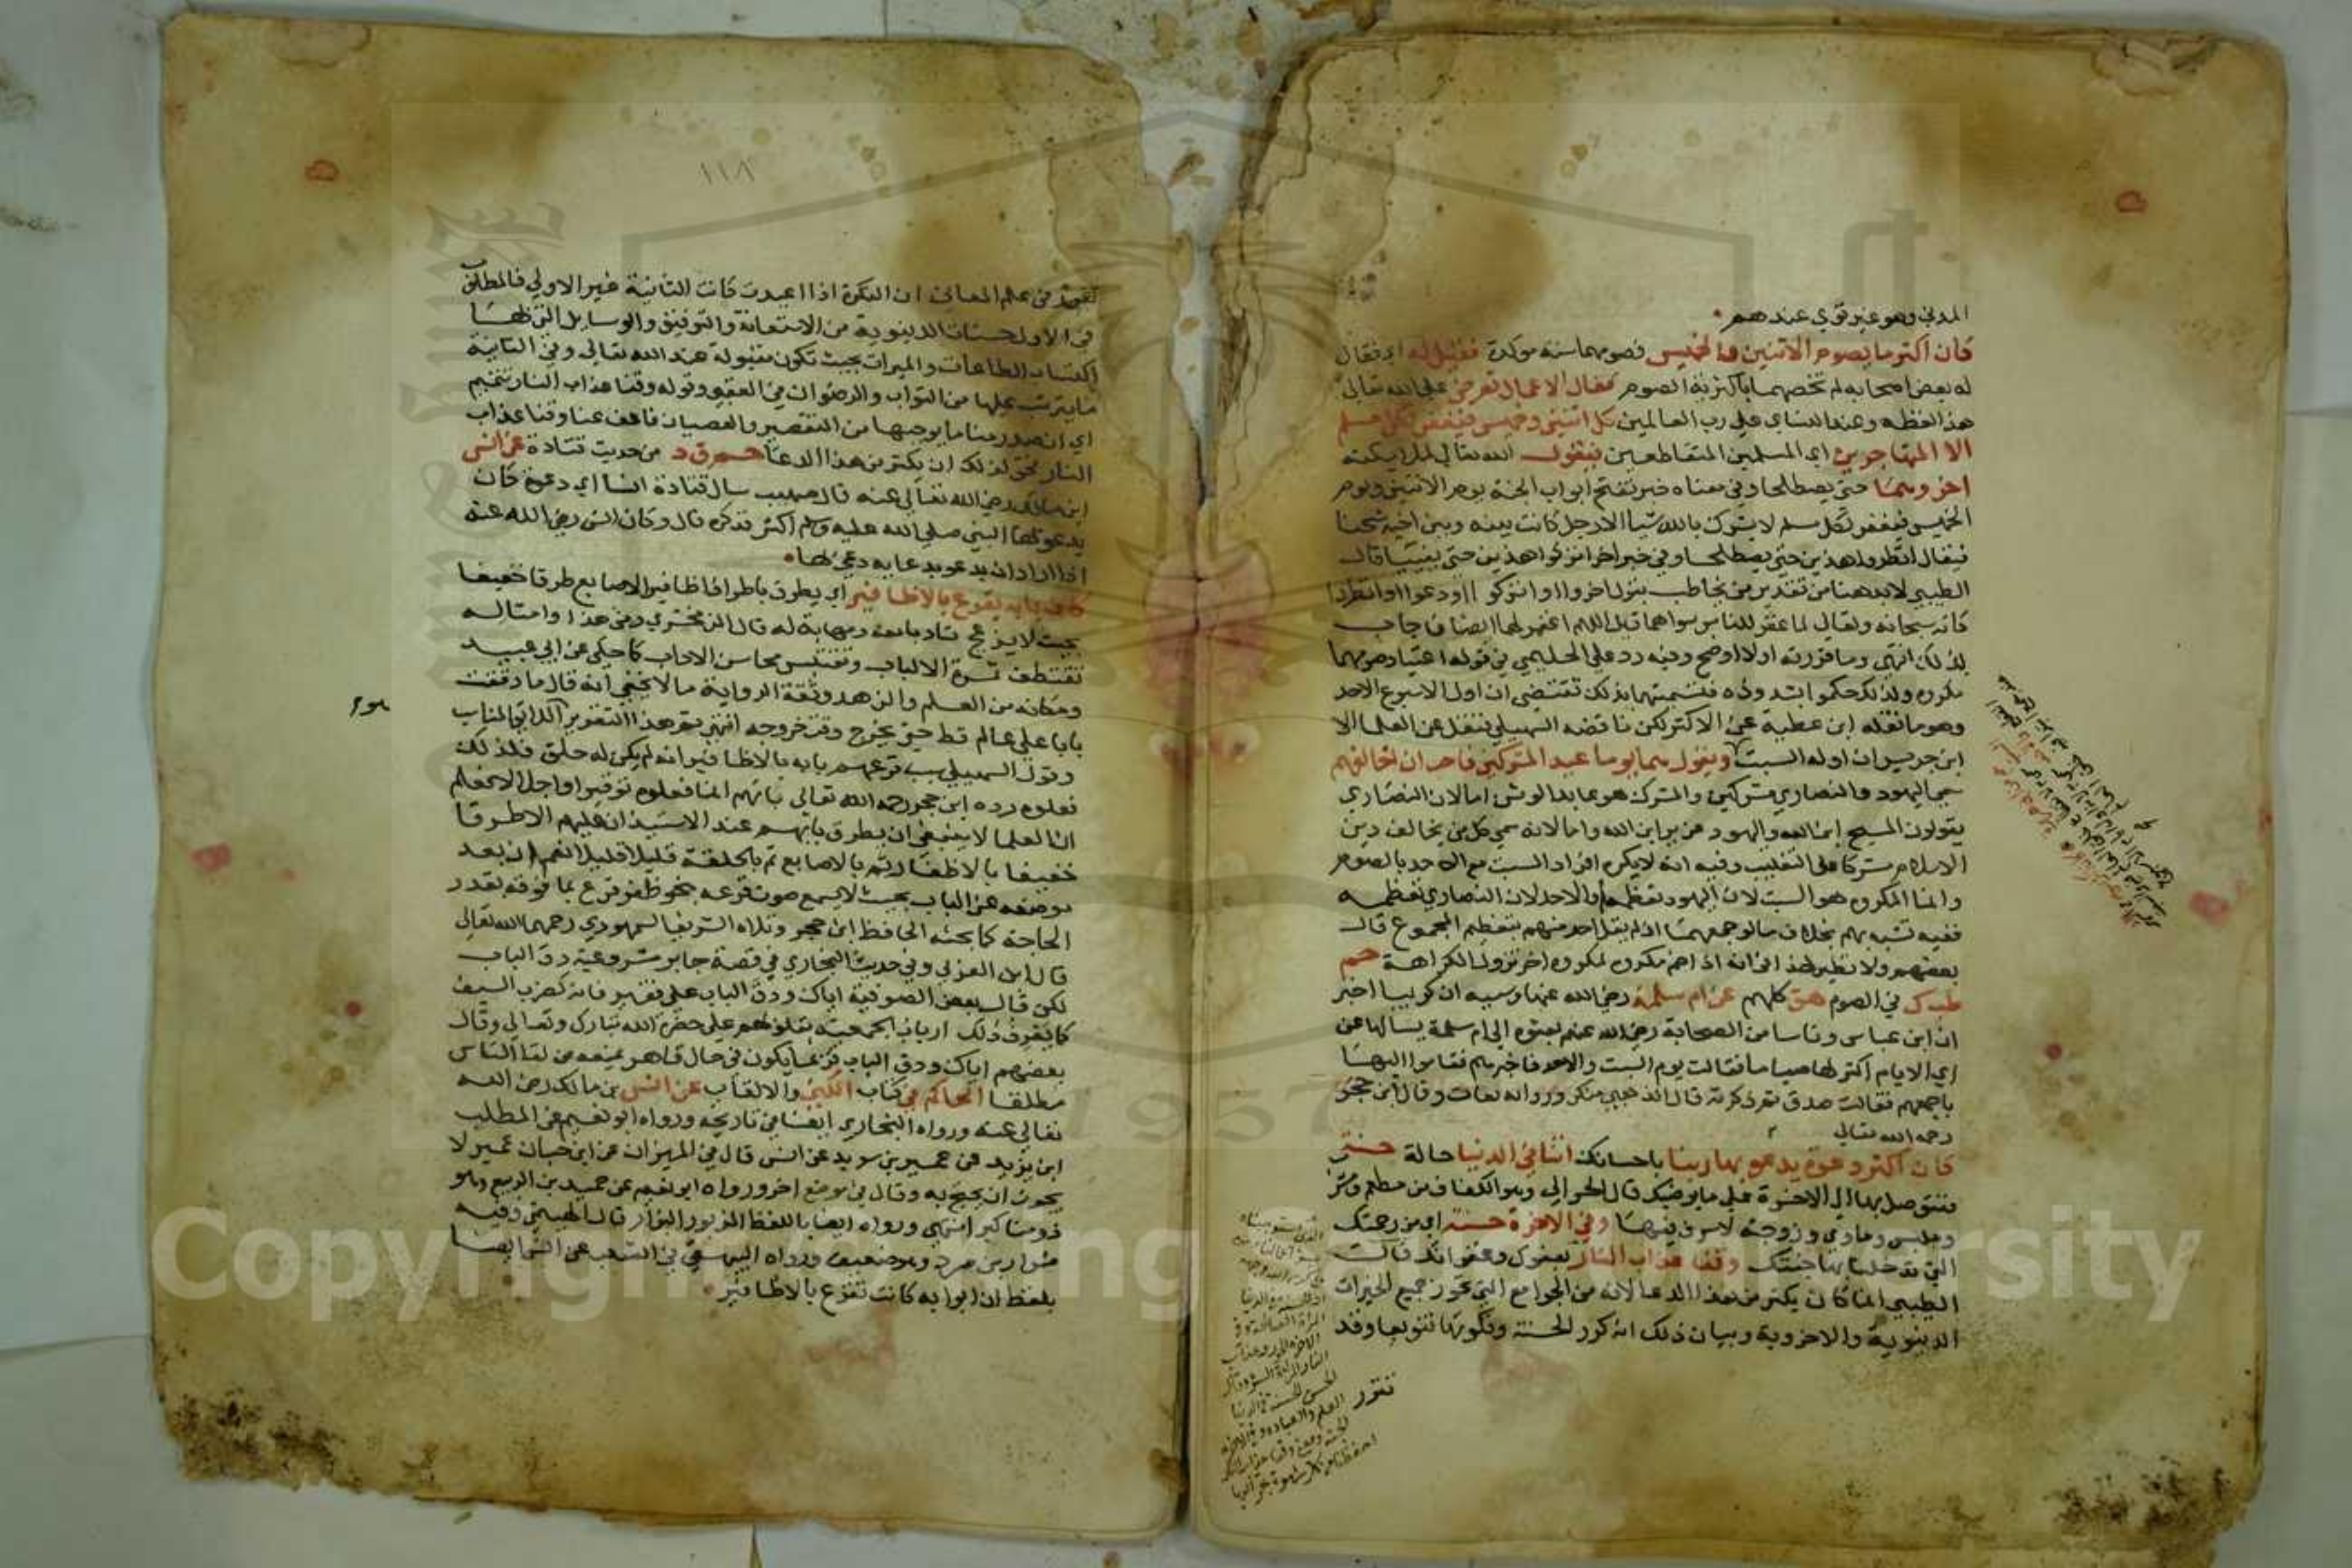 المدني وهو غير قوي عندهم
كان اكثر ما يصوم الاثنين والخميس فصومهما سنة موكدة فقيل له اي فقال
له بعض اصحابه لم تخصهما باكثرية الصوم فقال الاعمال تعرض على الله تعالى
هذا لفظه وعند النساي على رب العالمين كل اثنين وخميس فيغفر لكل مسلم
الا المتهاجرين اي المسلمين المتقاطعين فيقول الله تعالى لملايكته
اخروهما حتى يصطلحا وفي معناه خبر تفتح ابواب الجنة يوم الاثنين ويوم
الخميس فيغفر لكل مسلم لا يشرك بالله شيا الا رجل كانت بينه وبين اخيه شحنا
فيقال انظروا هذين حتى يصطلحا وفي خبر اخر اتركوا هذين حتى يفييا قال
الطيبي لا بد هنا من تقدير من يخاطب بقول اخروا او اتركو او دعوا او انظروا
كانه سبحانه وتعالى لما غفر للناس سواهما قيل اللهم اغفر لهما ايضا فاجاب
بذلك انتهى وما قررته اولا اوضح وفيه رد على الحليمي في قوله اعتياد صومهما
مكروه ولذلك حكموا فتسميتهما بذلك تقتضي ان اول الاسبوع الاحد
وهو ما نقله ابن عطية عن الاكثر لكن ناقضه السهيلي فنقل عن العلما الا
ابن جرير ان اوله السبت ويقول هما يوما عيد المشركين فاحب ان اخالفهم
سمى اليهود والنصارى مشركين والمشرك هو عابد الوثن اما لان النصارى
يقولون المسيح ابن الله واليهود عزير ابن الله واما لانه سمى كل من يخالف دين
الاسلام مشركا على التغليب وفيه انه لا يكره افراد السبت مع الاحد بالصوم
وانما المكروه هو السبت لان اليهود تعظمه والاحد لان النصارى تعظمه
ففيه تشبه بهم بخلاف ما لو جمعهما اذ لم يقل احد منهم بتعظيم المجموع قال
بعضهم ولا نظير لهذا في انه اذا ضم مكروه لمكروه اخر تزول الكراهة حم
طب ك في الصوم هق كلهم عن ام سلمة رضي الله عنها وسببه ان كريبا اخبر
ان ابن عباس وناسا من الصحابة رضي الله عنهم بعثوه الى ام سلمة يسالها عن
اي الايام اكثر لها صياما فقالت يوم السبت والاحد فاخبرهم فقاموا اليها
باجمعهم فقالت صدق ثم ذكرته قال الذهبي منكر ورواته ثقات وقال ابن حجر
رحمه الله تعالى
كان اكثر دعوة يدعو بها ربنا باحسانك اتنا في الدنيا حالة حسنة
فنتوصل بها الى الاخرة على ما يرضيك قال الحرالي وهو الكفاف من مطعم ومشرب
وملبس وماوى وزوجة لا سرف فيها وفي الاخرة حسنة اي من رحمتك
التي تدخلنا بها جنتك وقنا عذاب النار بعفوك وغفرانك قال
الطيبي انما كان يكثر من هذا الدعا لانه من الجوامع التي تحوز جميع الخيرات
الدنيوية والاخروية وبيان ذلك انه كرر الحسنة ونكرها تنويعا وقد
تقرر
١١٨
تقرر في علم المعاني ان النكرة اذا اعيدت كانت الثانية غير الاولى فالمطلوب
في الاولى الحسنات الدنيوية من الاستعانة والتوفيق والوسايل التي بها
اكتساب الطاعات والمبرات بحيث تكون مقبولة عند الله تعالى وفي الثانية
ما يترتب عليها من الثواب والرضوان في العقبى وقوله وقنا عذاب النار تتميم
اي ان صدر منا ما يوجبها من التقصير والعصيان فاعف عنا وقنا عذاب
النار فحق لذلك ان يكثر من هذا الدعا حم ق د من حديث قتادة عن انس
ابن مالك رضي الله تعالى عنه قال صهيب سال قتادة انسا اي دعوة كان
يدعو بها النبي صلى الله عليه وسلم اكثر فذكره قال وكان انس رضي الله عنه
اذا اراد ان يدعو بدعا به دعى بها
كان بابه يقرع بالاظافير اي يطرق باطراف اظافير الاصابع طرقا خفيفا
بحيث لا يزعج تادبا معه ومهابة له قال الزمخشري ومن هذا وامثاله
تقتطف ثمرة الالباب وتقتبس محاسن الاداب كما حكي عن ابي عبيد
ومكانه من العلم والزهد وثقة الرواية ما لا يخفى انه قال ما دققت
بابا على عالم قط حتى يخرج وقت خروجه انتهى ثم هذا التقرير
وقول السهيلي سبب قرعهم بابه بالاظافير انه لم يكن له حلق فلذلك
فعلوه رده ابن حجر رحمه الله تعالى بانهم انما فعلوه توقيرا واجلالا فعلم
ان العلما لا ينبغي ان يطرق بابهم عند الاستيذان عليهم الا طرقا
خفيفا بالاظفار ثم بالاصابع ثم بالحلقة قليلا قليلا نعم ان بعد
موضعه عن الباب بحيث لا يسمع صوت قرعه بنحو ظفر قرع بما فوقه بقدر
الحاجة كما بحثه الحافظ ابن حجر وتلاه الشريف السمهودي رحمهما الله تعالى
قال ابن العربي وفي حديث البخاري في قصة جابر مشروعية دق الباب
لكن قال بعض الصوفية اياك ودق الباب على فقير فانه كضرب السيف
كما يعرف ذلك ارباب الجمعية بقلوبهم على حضرة الله تبارك وتعالى وقال
بعضهم اياك ودق الباب فربما يكون في حال قاهر يمنعه من لقا الناس
مطلقا الحاكم في كتاب الكنى والالقاب عن انس بن مالك رضي الله
تعالى عنه ورواه البخاري ايضا في تاريخه ورواه ابو نعيم عن المطلب
ابن يزيد عن عمير بن سويد عن انس قال في الميزان عن ابن حبان عمير لا
يجوز ان يحتج به وقال في موضع اخر ورواه ابو نعيم عن حميد بن الربيع وهو
ذو مناكير انتهى ورواه ايضا باللفظ المزبور البزار قال الهيثمي وفيه
ضرار بن صرد وهو ضعيف ورواه البيهقي في الشعب عن انس ايضا
بلفظ ان ابوابه كانت تقرع بالاظافير
Copyright © King Saud University
1957